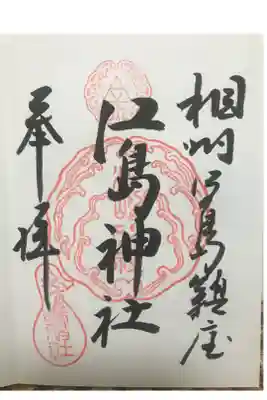 相州江島鎮座
江島神社
奉拝